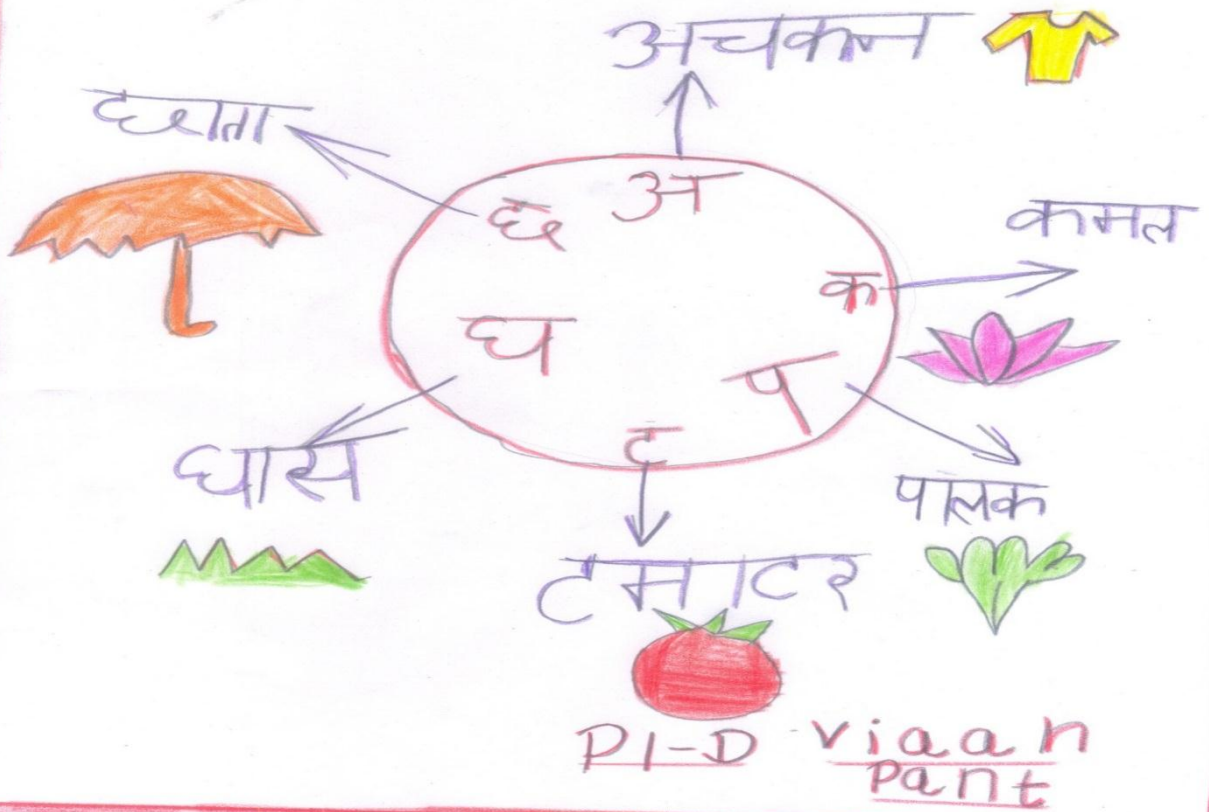 अचकन
छाता
छ
अ
क
कमल
घ
प
ट
घास
पालक
टमाटर
P1-D viaan
pant